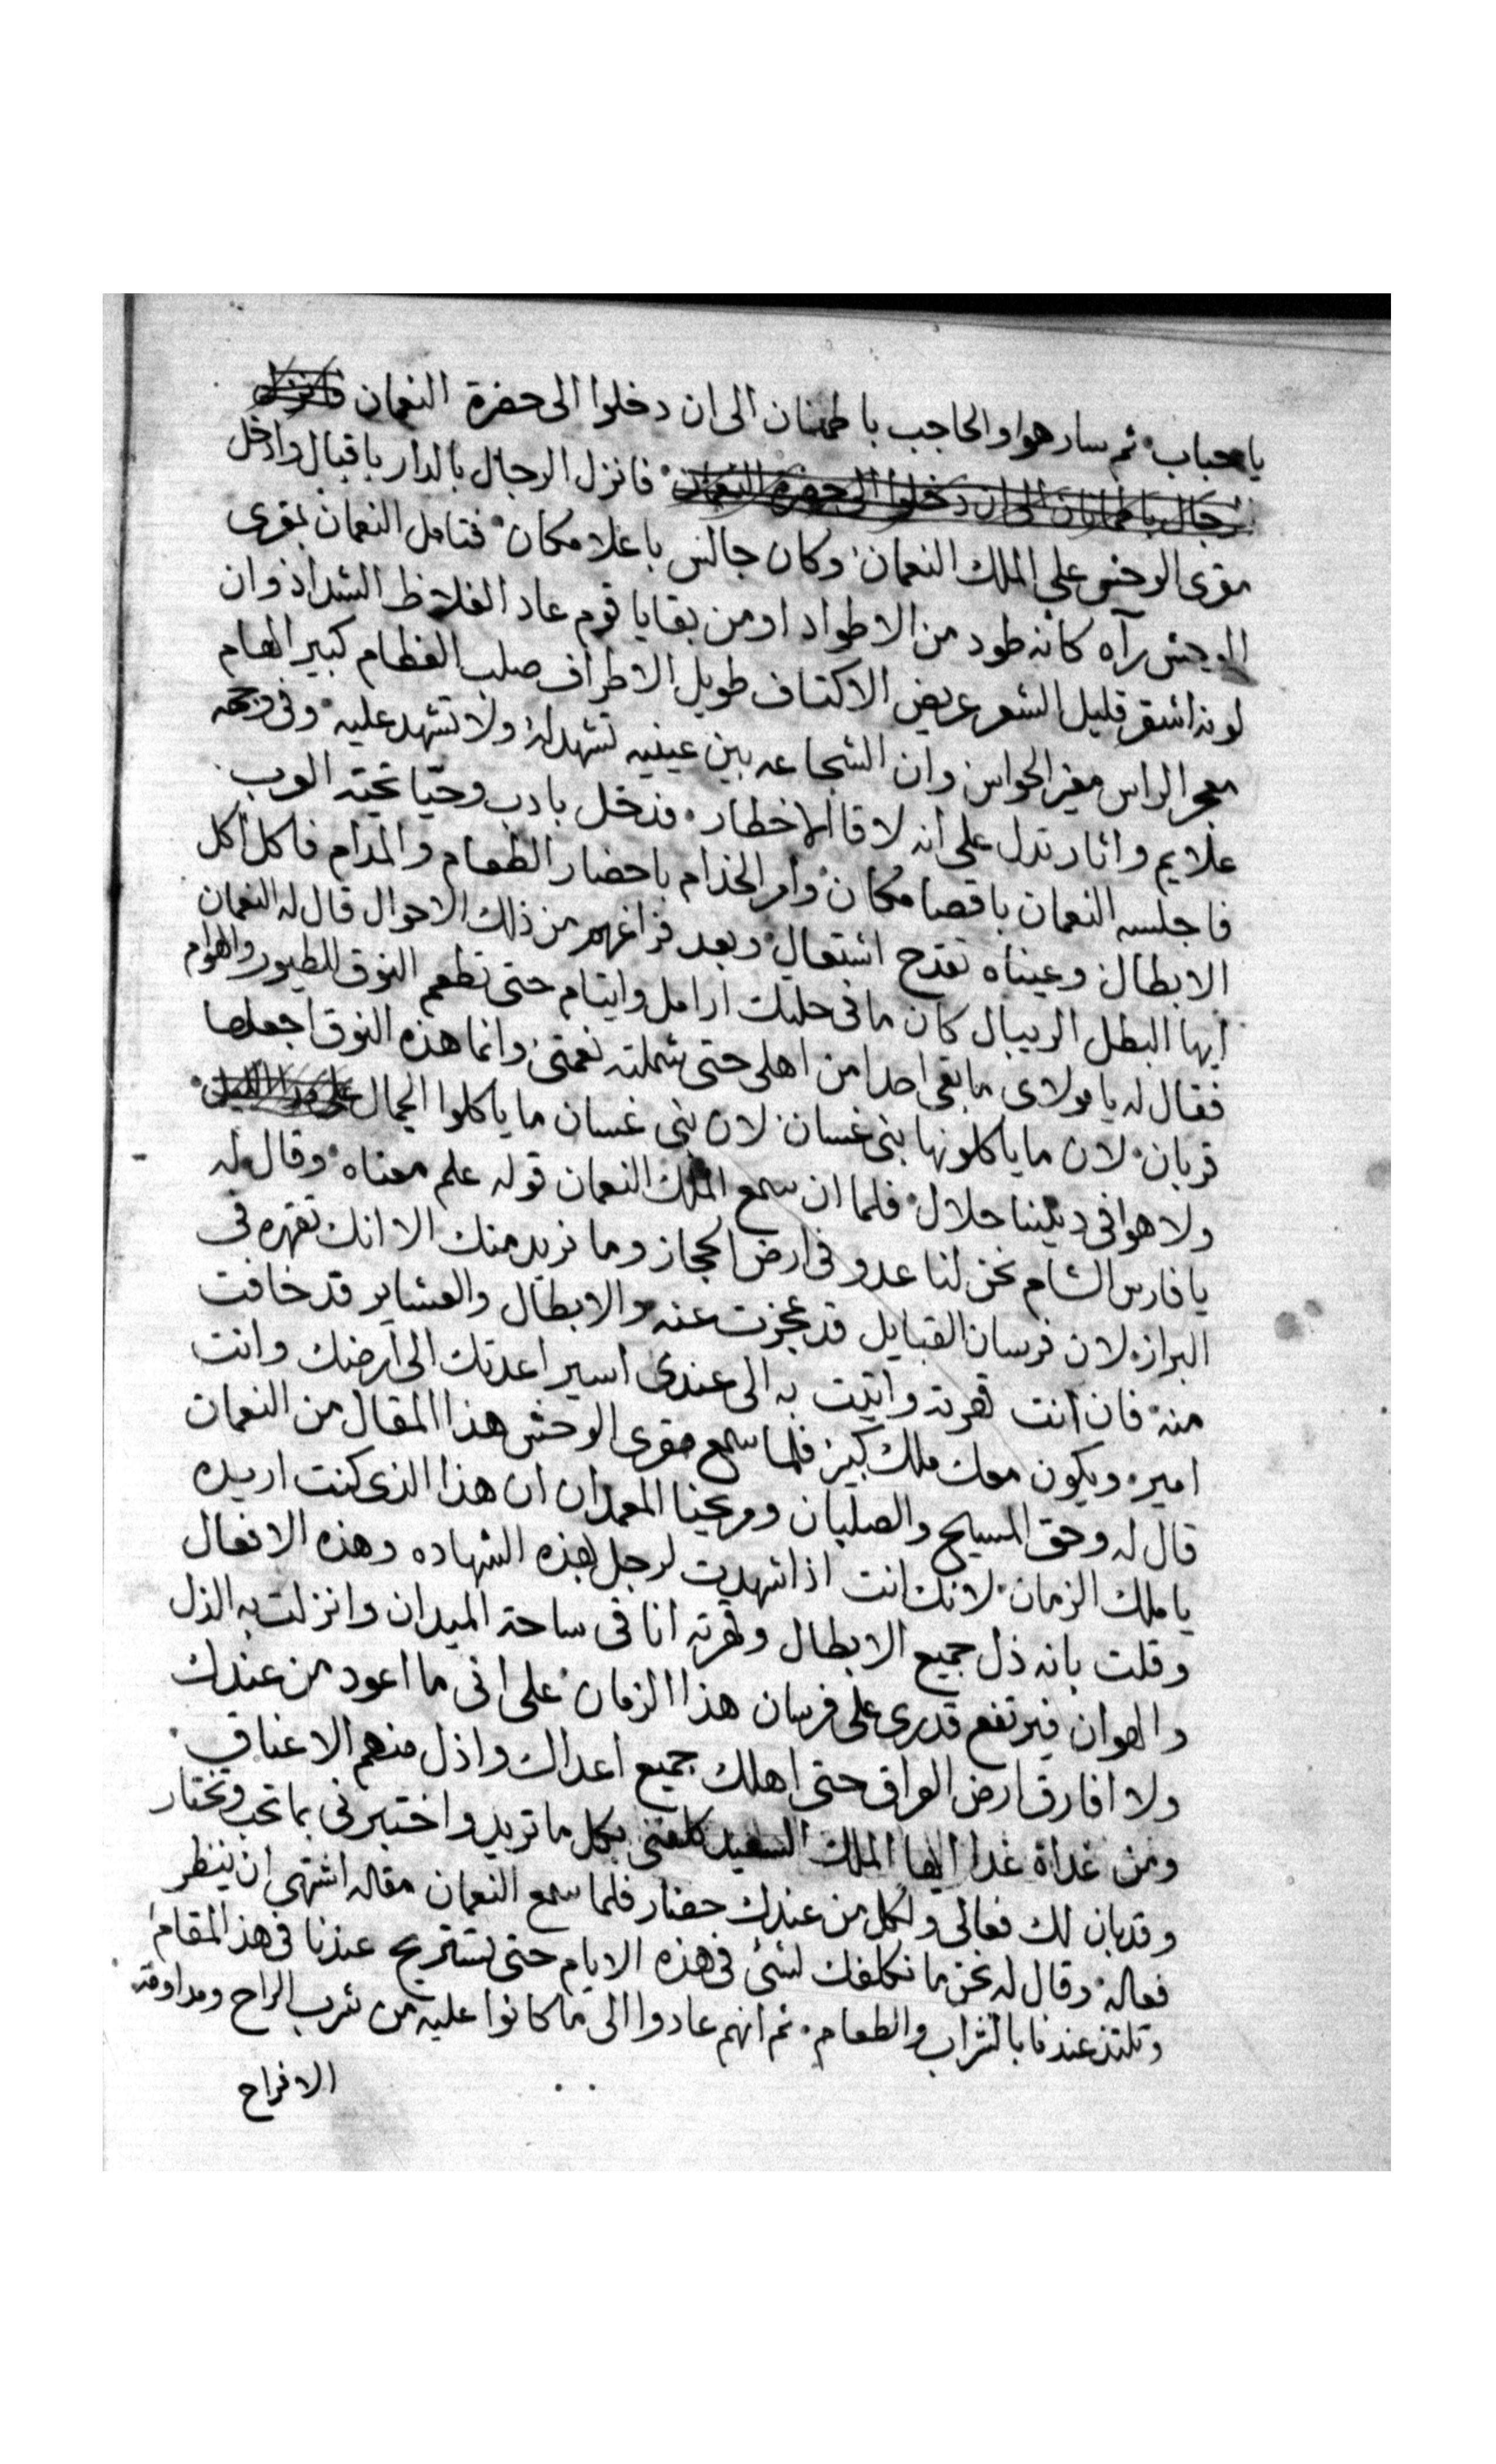 ياحباب ثم سار هوا والحاجب باطمنان الى ان دخلوا الى حضرة النعمان فانزل
الرجال باطمانان الى ان دخلوا الى حضرة النعمان فانزل الرجال بالدار باقبال وادخل
مقرى الوحش على الملك النعمان وكان جالس باعلا مكان فتامل النعمان بمقرى
الوحش رآه كانه طود من الاطواد او من بقايا قوم عاد الغلاظ الشداد وان
لونه اشقر قليل الشعر عريض الاكتاف طويل الاطراف صلب العظام كبير الهام
معجر الراس مغير الحواس وان الشجاعه بين عينيه تشهد له ولا تشهد عليه وفى وجهه
علايم واثار تدل على انه لاقا الاخطار فدخل بادب وحيا تحية العرب
فاجلسه النعمان باقصا مكان وامر الخدام باحضار الطعام والمدام فاكل اكل
الابطال وعيناه تقدح اشتعال وبعد فراغهم من ذلك الاحوال قال له النعمان
ايها البطل الريبال كان ما فى حلتك ارامل وايتام حتى تطعم النوق للطيور والهوام
فقال له يا مولاى ما بقى احدا من اهلى حتى شملته نعمتى وانما هذه النوق اجعلها
قربان لان ما ياكلونها بنى غسان لان بنى غسان ما ياكلوا الجمال
ولا هوا فى ديننا حلال فلما ان سمع الملك النعمان قوله علم معناه وقال له
يا فارس الشام نحن لنا عدو فى ارض الحجاز وما نريد منك الا انك تقهره فى
البراز لان فرسان القبايل قد عجزت عنه والابطال والعشاير قد خافت
منه فان انت قهرته واتيت به الى عندى اسير اعدتك الى ارضك وانت
امير ويكون معك ملك كبير فلما سمع مقرى الوحش هذا المقال من النعمان
قال له وحق المسيح والصلبان ومريحنا المعمدان ان هذا الذى كنت اريده
يا ملك الزمان لانك انت اذا شهدت لرجل بهذه الشهاده وهذه الافعال
وقلت بانه ذل جميع الابطال وقهرته انا فى ساحة الميدان وانزلت به الذل
والهوان فيرتفع قدرى على فرسان هذا الزمان على انى ما اعود من عندك
ولا افارق ارض العراق حتى اهلك جميع اعداك واذل منهم الاعناق
ومن غداة غدا ايها الملك السعيد كلفنى بكل ما تريد واختبرنى بما تحب وتختار
وقد بان لك فعالى ولكل من عندك حضار فلما سمع النعمان مقاله اشتهى ان ينظر
فعاله وقال له نحن ما نكلفك لشئ فى هذه الايام حتى تستريح عندنا فى هذا المقام
وتلتذ عندنا بالشراب والطعام ثم انهم عادوا الى ما كانوا عليه من شرب الراح ومداومة
الافراح